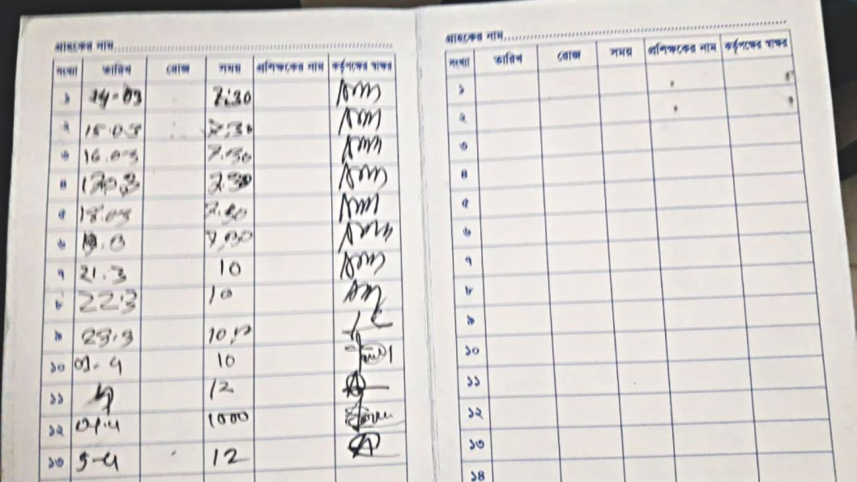 গ্রাহকের নাম
সংখ্যা তারিখ রোজ সময় প্রশিক্ষকের নাম কর্তৃপক্ষের স্বাক্ষর
১ 14-03 7:30
২ 15.03 7.30
৩ 16.03 7.30
৪ 17.03 7.30
৫ 18.03 7.30
৬ 7.30
৭ 21.3 10
৮ 22.3 10
৯ 23.3
১০ 01-4 10
১১ 12
১২ 1000
১৩ 5-4 12
গ্রাহকের নাম
সংখ্যা তারিখ রোজ সময় প্রশিক্ষকের নাম কর্তৃপক্ষের স্বাক্ষর
১
২
৩
৪
৫
৬
৭
৮
৯
১০
১১
১২
১৩
১৪